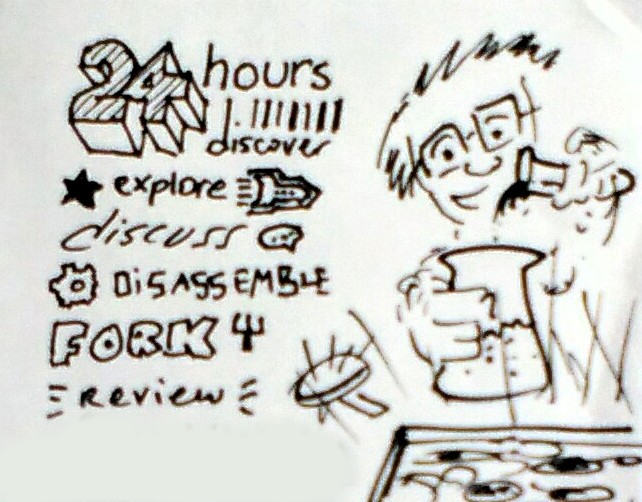 24 hours
discover
explore
discuss
DiSASSEMBLE
FORK
Review